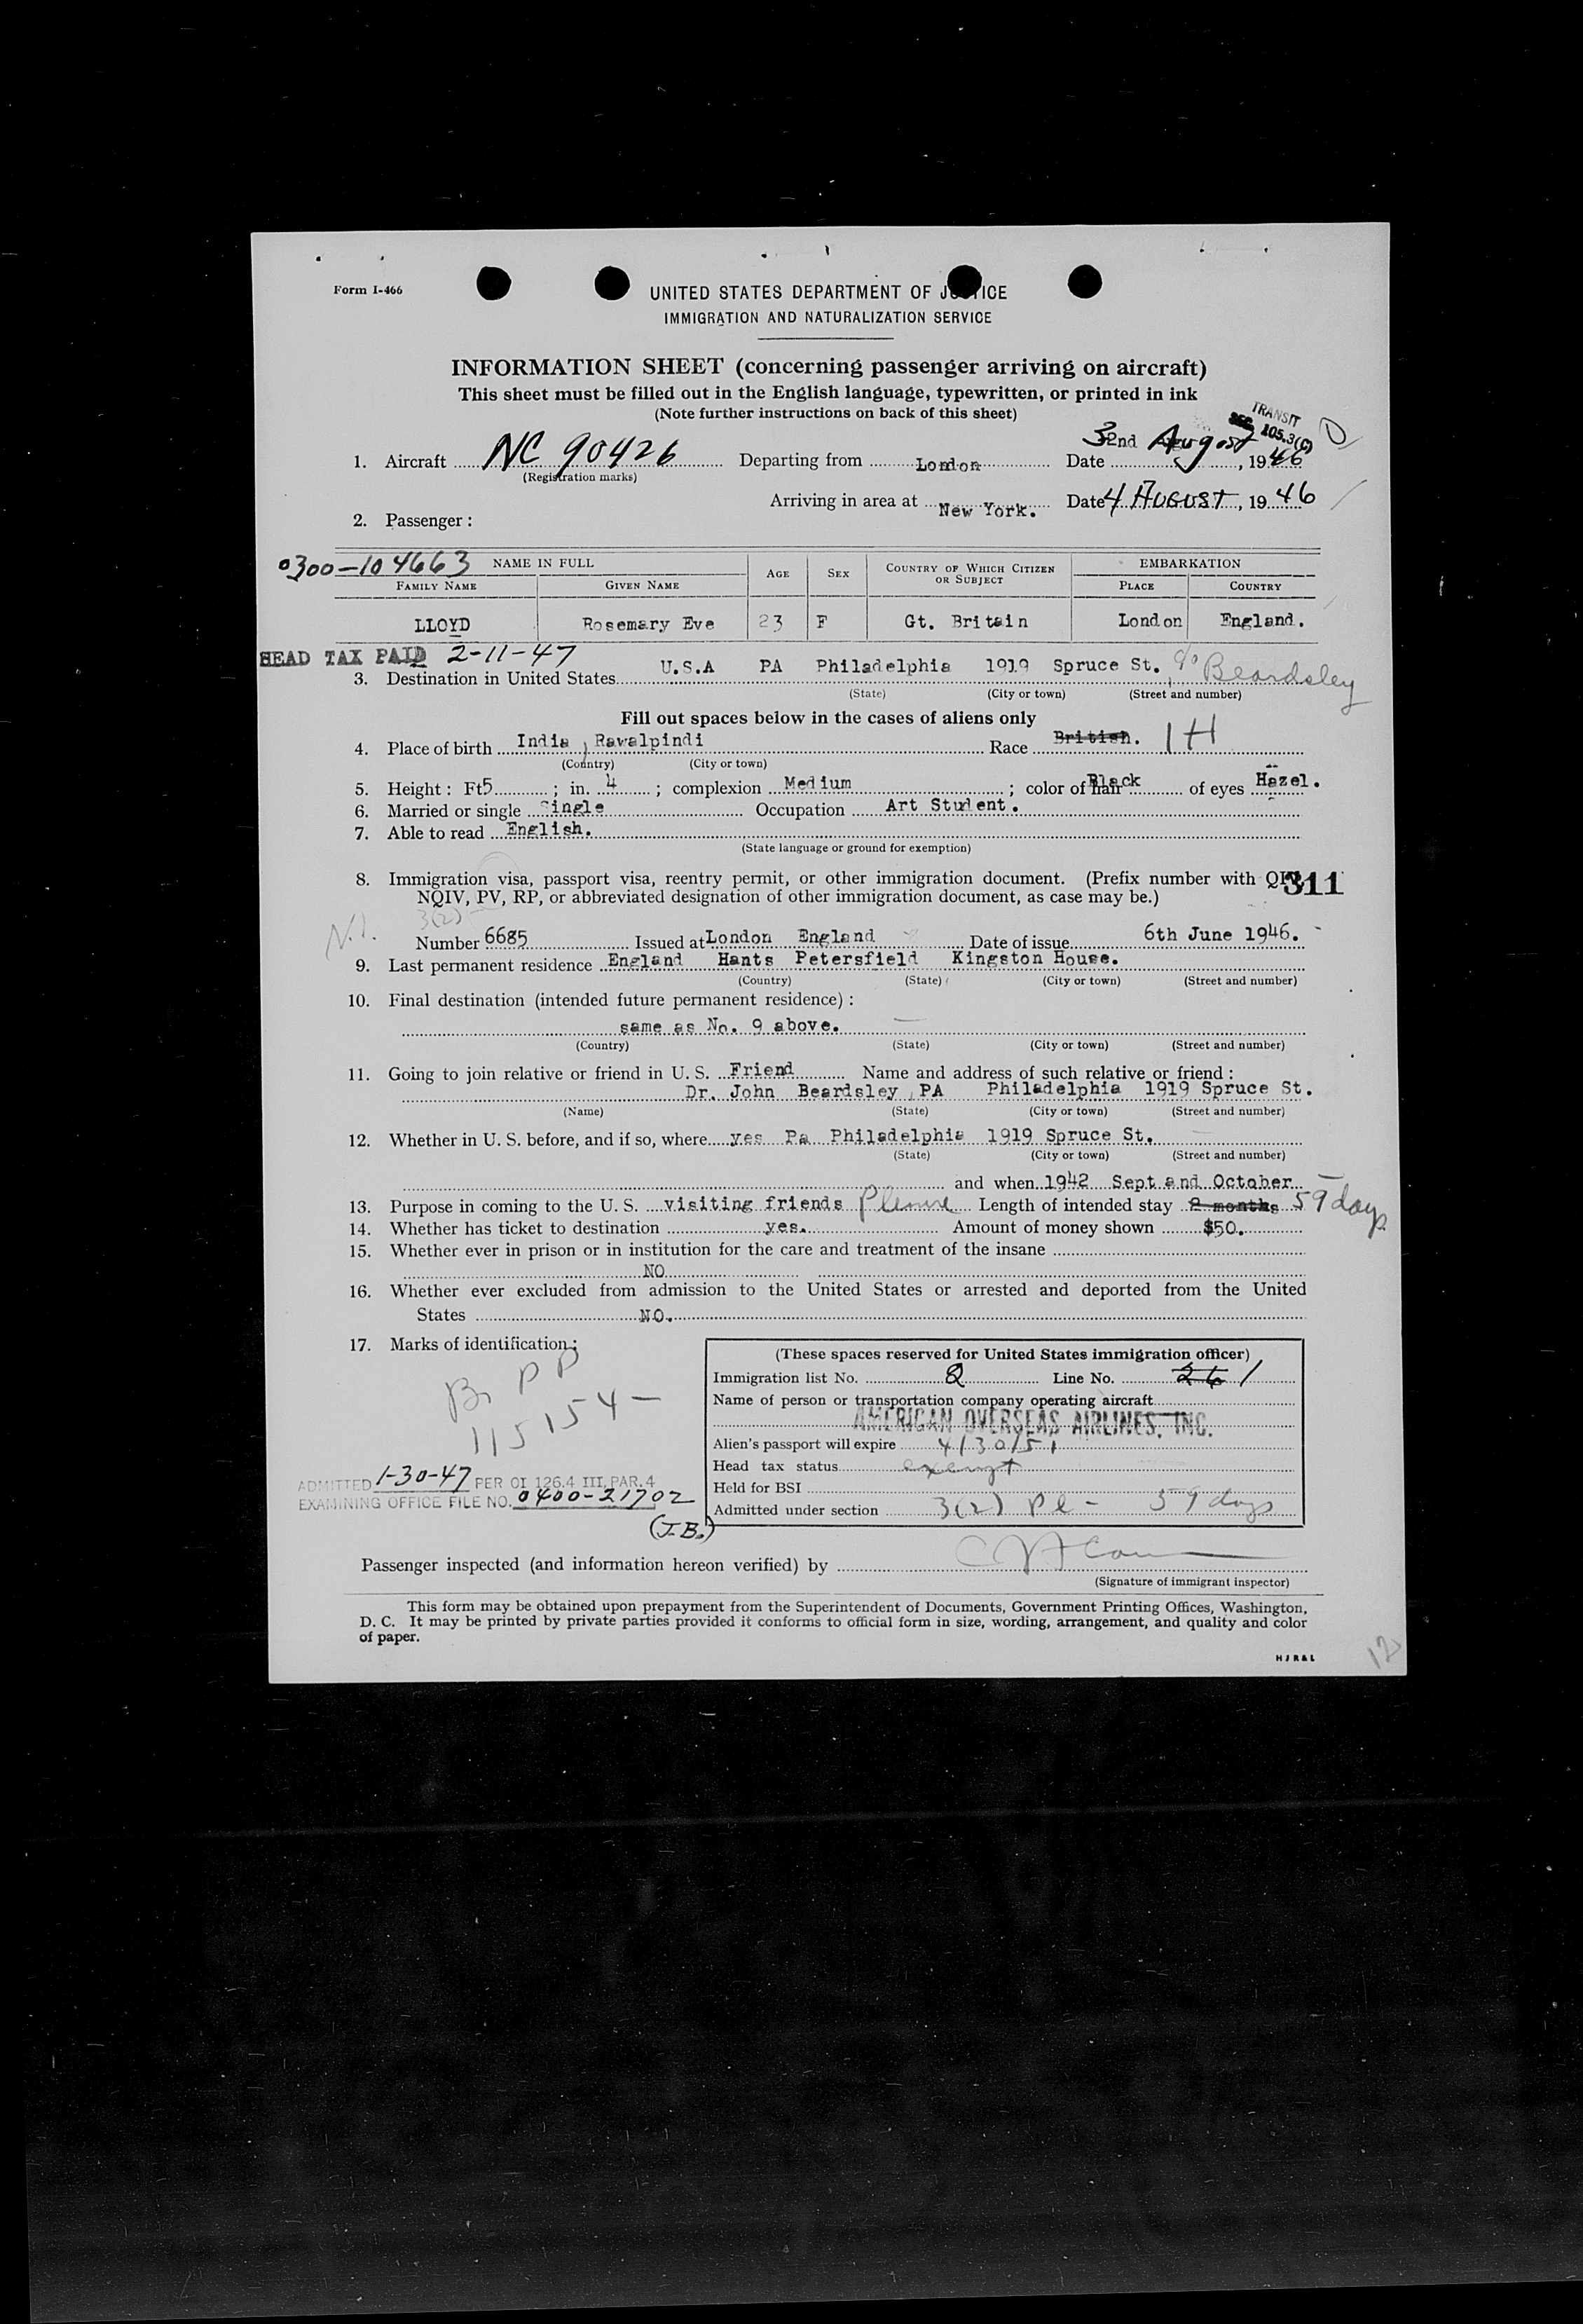 Form I-466
UNITED STATES DEPARTMENT OF JUSTICE
IMMIGRATION AND NATURALIZATION SERVICE
INFORMATION SHEET (concerning passenger arriving on aircraft)
This sheet must be filled out in the English language, typewritten, or printed in ink
(Note further instructions on back of this sheet)
TRANSIT
SEC 105.3(C)
1. Aircraft NC 90426 Departing from London Date 2nd August, 1946
(Registration marks)
Arriving in area at New York. Date 4 AUGUST, 1946
2. Passenger:
0300-104663 NAME IN FULL AGE SEX COUNTRY OF WHICH CITIZEN OR SUBJECT EMBARKATION
FAMILY NAME GIVEN NAME PLACE COUNTRY
LLOYD Rosemary Eve 23 F Gt. Britain London England.
HEAD TAX PAID 2-11-47
3. Destination in United States U.S.A PA Philadelphia 1919 Spruce St. c/o Beardsley
(State) (City or town) (Street and number)
Fill out spaces below in the cases of aliens only
4. Place of birth India, Rawalpindi Race British. IH
(Country) (City or town)
5. Height: Ft 5; in. 4; complexion Medium; color of hair Black of eyes Hazel.
6. Married or single Single Occupation Art Student.
7. Able to read English.
(State language or ground for exemption)
8. Immigration visa, passport visa, reentry permit, or other immigration document. (Prefix number with QIV, 311
NQIV, PV, RP, or abbreviated designation of other immigration document, as case may be.)
N.I. 3(2)
Number 6685 Issued at London England Date of issue 6th June 1946.
9. Last permanent residence England Hants Petersfield Kingston House.
(Country) (State) (City or town) (Street and number)
10. Final destination (intended future permanent residence):
same as No. 9 above.
(Country) (State) (City or town) (Street and number)
11. Going to join relative or friend in U. S. Friend Name and address of such relative or friend:
Dr. John Beardsley, PA Philadelphia 1919 Spruce St.
(Name) (State) (City or town) (Street and number)
12. Whether in U. S. before, and if so, where yes Pa Philadelphia 1919 Spruce St.
(State) (City or town) (Street and number)
and when 1942 Sept and October
13. Purpose in coming to the U. S. visiting friends Pleasure Length of intended stay 2 months 59 days
14. Whether has ticket to destination yes. Amount of money shown $50.
15. Whether ever in prison or in institution for the care and treatment of the insane
NO
16. Whether ever excluded from admission to the United States or arrested and deported from the United
States NO.
17. Marks of identification:
Br PP
115154-
ADMITTED 1-30-47 PER OI 126.4 III, PAR. 4
EXAMINING OFFICE FILE NO. 0400-21702
(J.B.)
(These spaces reserved for United States immigration officer)
Immigration list No. 2 Line No. 26 1
Name of person or transportation company operating aircraft
AMERICAN OVERSEAS AIRLINES, INC.
Alien's passport will expire 4/30/51
Head tax status exempt
Held for BSI
Admitted under section 3(2) Pl - 59 days
Passenger inspected (and information hereon verified) by
(Signature of immigrant inspector)
This form may be obtained upon prepayment from the Superintendent of Documents, Government Printing Offices, Washington,
D. C. It may be printed by private parties provided it conforms to official form in size, wording, arrangement, and quality and color
of paper.
HJR&L
12